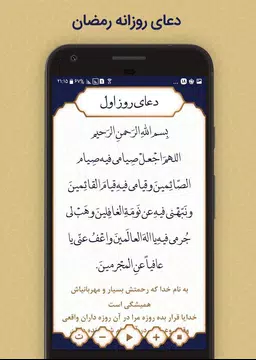 دعای روزانه رمضان
۲۱:۱۵ ۶۷%
دعای روز اول
بِسمِ اللهِ الرَحمنِ الرَحیمِ
اللهمَ اجْعلْ صِیامی فیهِ صِیام
الصّائِمینَ وقیامی فیهِ قیامَ القائِمینَ
ونَبّهْنی فیهِ عن نَومَةِ الغافِلینَ وهَبْ لی
جُرمی فیهِ یا الهَ العالَمینَ واعْفُ عنّی یا
عافیاً عنِ المُجْرمینَ.
به نام خدا که رحمتش بسیار و مهربانیاش
همیشگی است
خدایا قرار بده روزه مرا در آن روزه داران واقعی